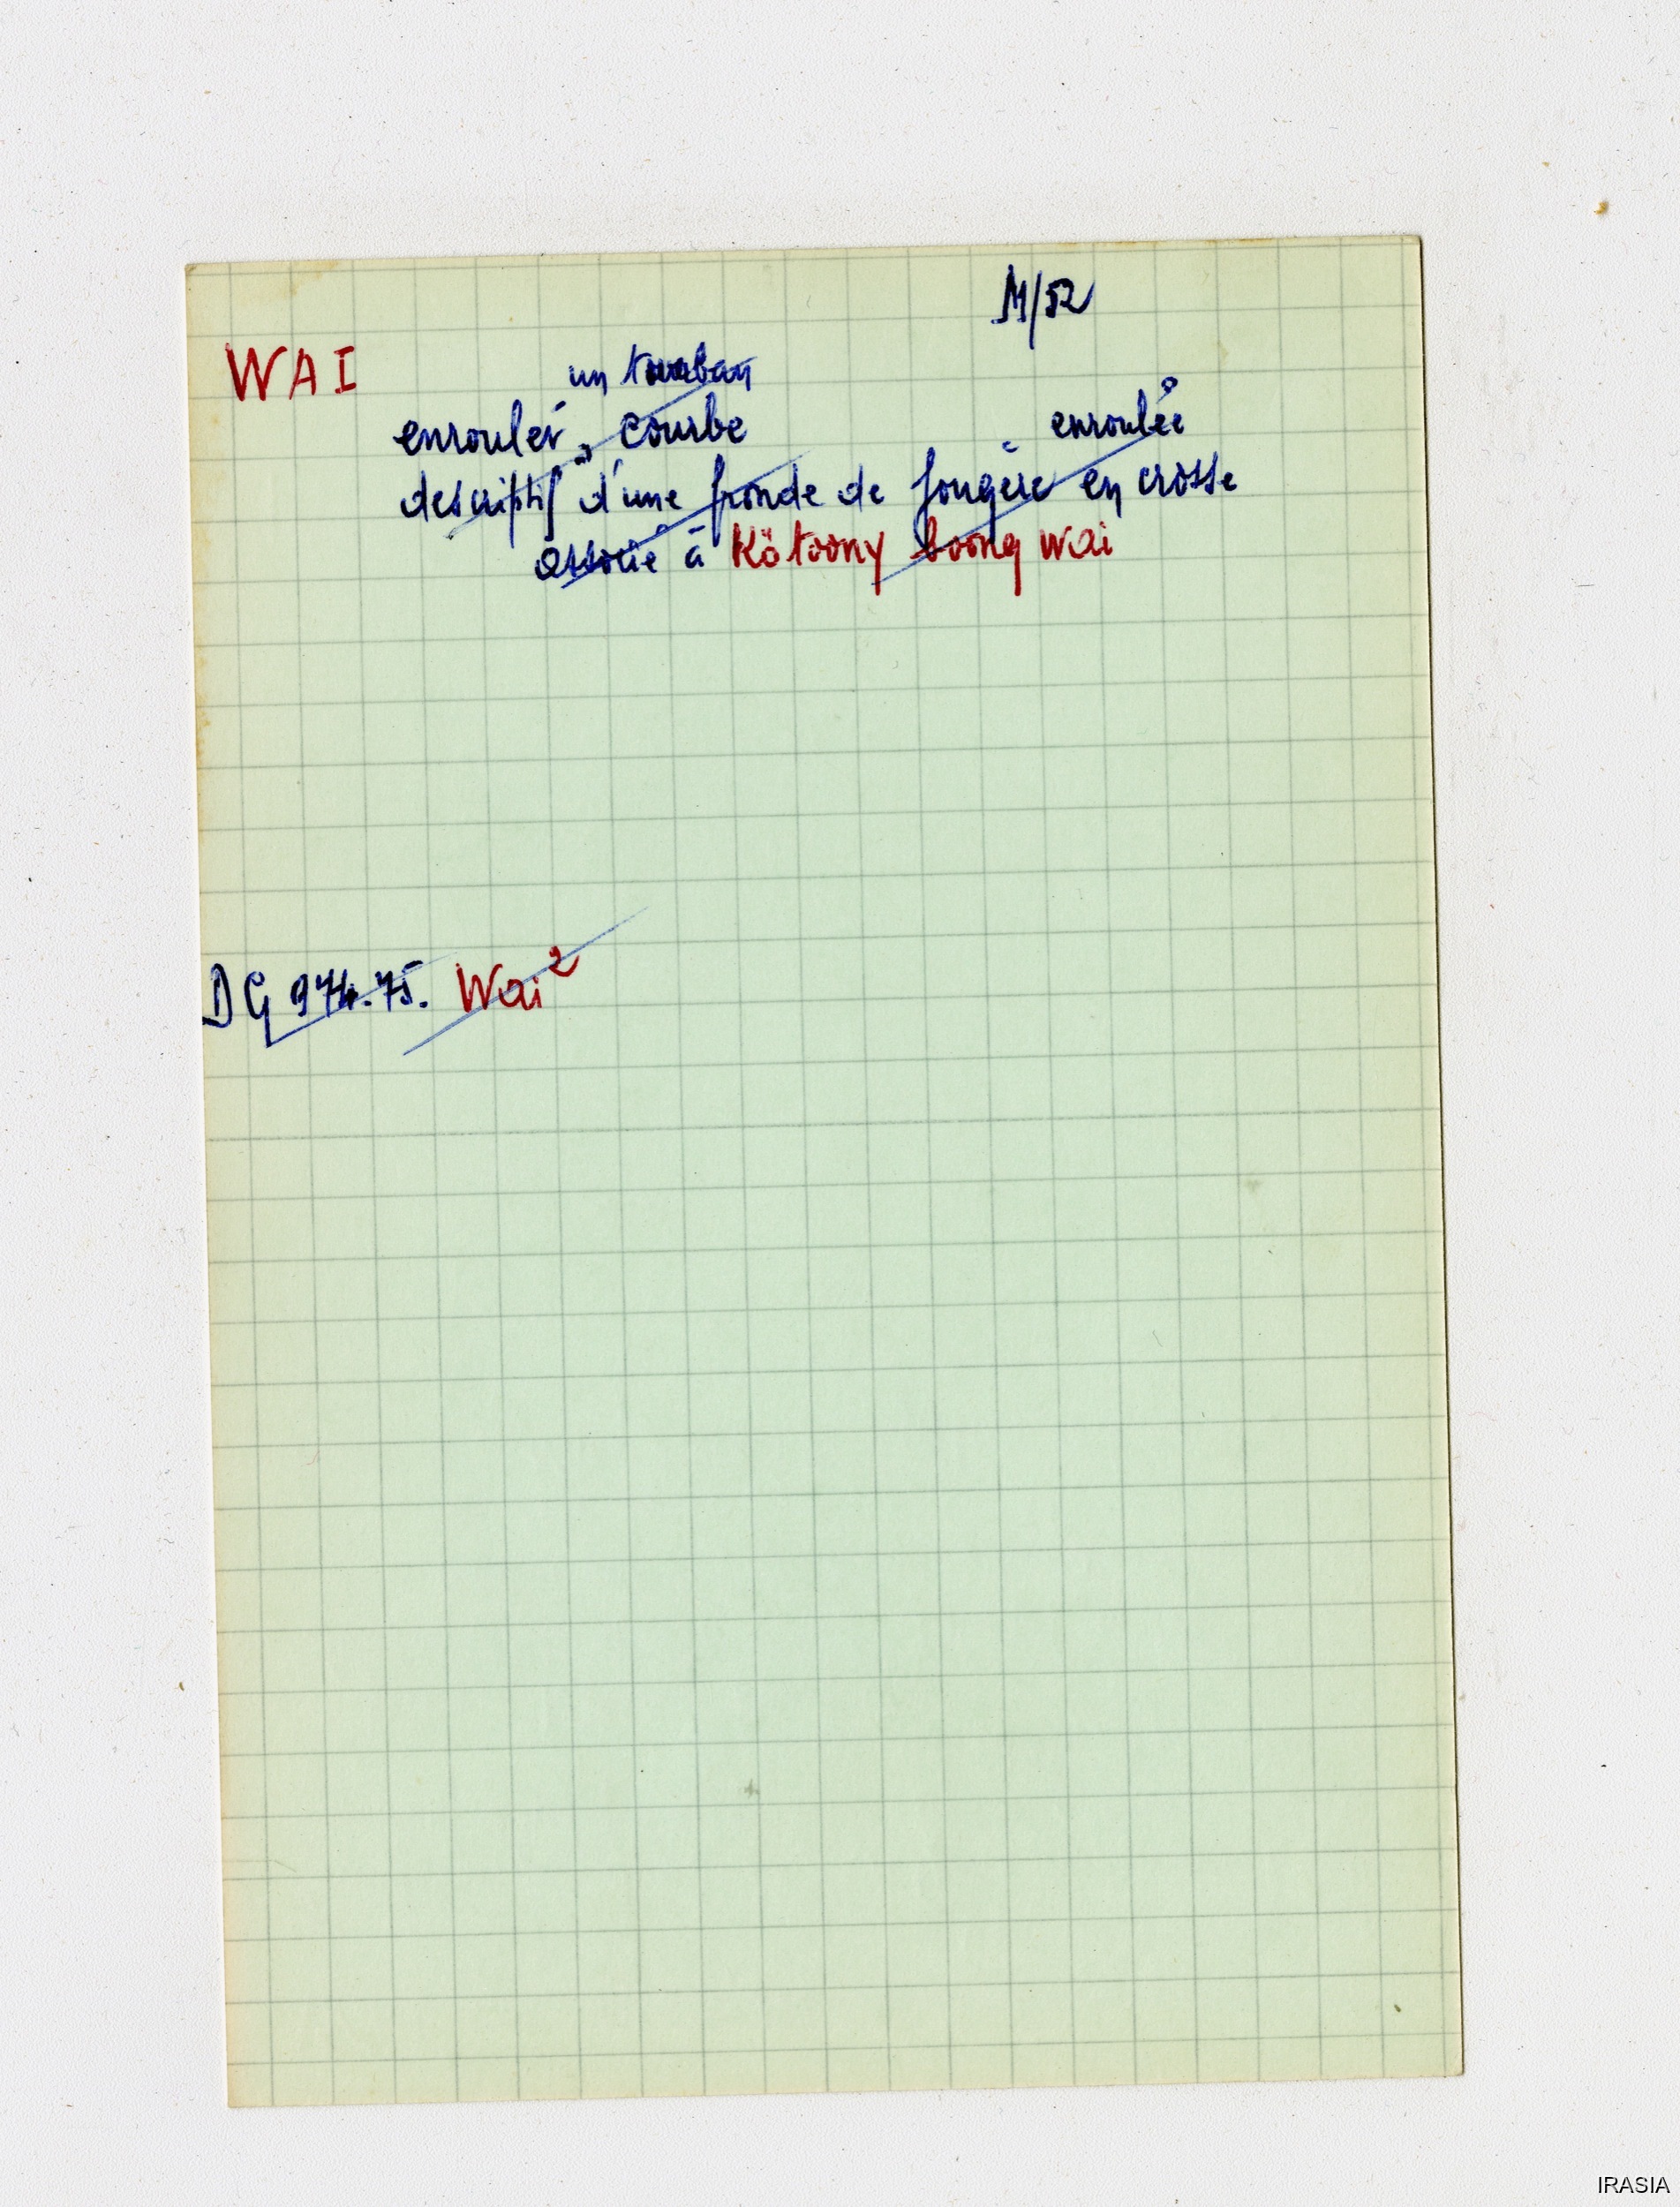 M/52
WAI
un tourban
enrouler, courbe
enroulée
descriptif d'une fronde de fougère en crosse
associé à Kötoony boong wai
DG 974-75. Wai²
IRASIA